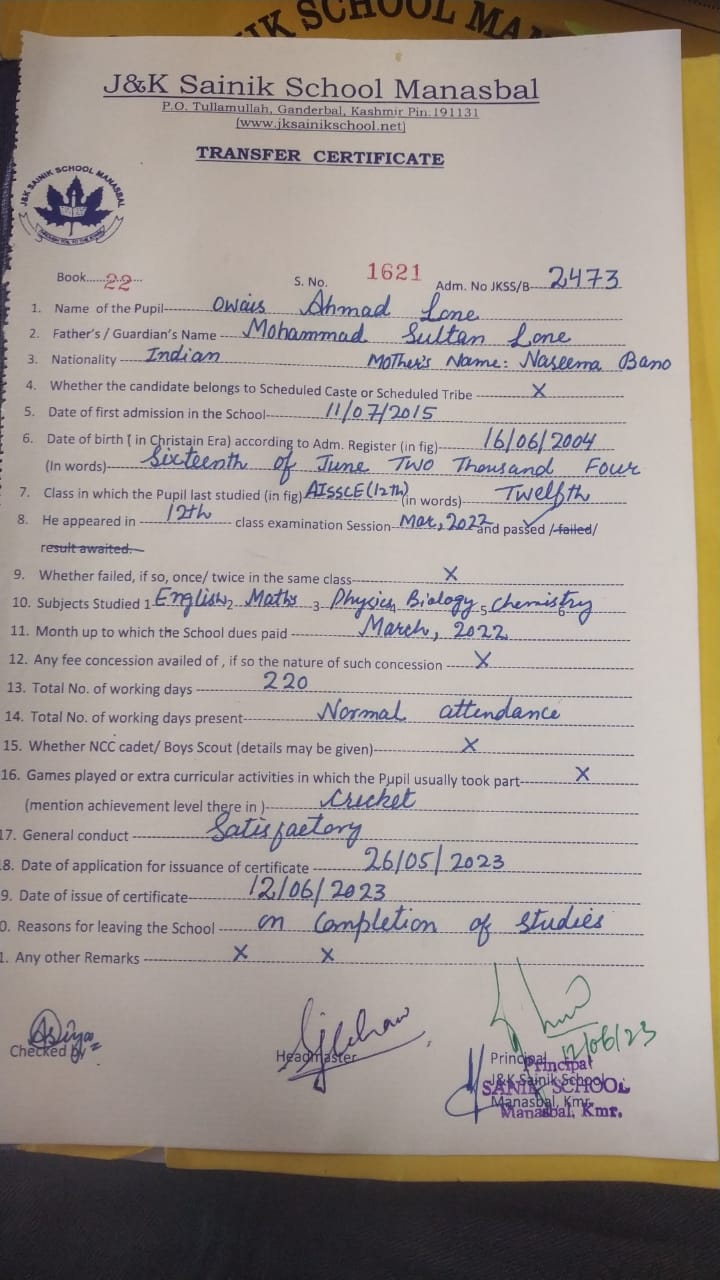 IK SCHOOL MAN
J&K Sainik School Manasbal
P.O. Tullamullah, Ganderbal, Kashmir Pin.191131
(www.jksainikschool.net)
TRANSFER CERTIFICATE
J&K SAINIK SCHOOL MANASBAL
Book......22.... S. No. 1621 Adm. No JKSS/B---2473
1. Name of the Pupil---- Owais Ahmad Lone
2. Father's / Guardian's Name ---- Mohammad Sultan Lone
3. Nationality ---- Indian Mother's Name: Naseema Bano
4. Whether the candidate belongs to Scheduled Caste or Scheduled Tribe ---- X
5. Date of first admission in the School---- 11/07/2015
6. Date of birth ( in Christain Era) according to Adm. Register (in fig)---- 16/06/2004
(In words)---- Sixteenth of June Two Thousand Four
7. Class in which the Pupil last studied (in fig) AISSCE (12th) (in words)---- Twelfth
8. He appeared in ---- 12th ---- class examination Session---- Mar, 2022 and passed /failed/
result awaited.
9. Whether failed, if so, once/ twice in the same class---- X
10. Subjects Studied 1 English 2 Maths 3 Physics 4 Biology 5 Chemistry 6
11. Month up to which the School dues paid ---- March, 2022
12. Any fee concession availed of , if so the nature of such concession ---- X
13. Total No. of working days ---- 220
14. Total No. of working days present---- Normal attendance
15. Whether NCC cadet/ Boys Scout (details may be given)---- X
16. Games played or extra curricular activities in which the Pupil usually took part---- X
(mention achievement level there in )---- Cricket
17. General conduct ---- Satisfactory
8. Date of application for issuance of certificate ---- 26/05/2023
9. Date of issue of certificate---- 12/06/2023
0. Reasons for leaving the School ---- on Completion of studies
1. Any other Remarks ---- X X
Checked by
Headmaster
12/06/23
Principal
J&K Sainik School
Manasbal, Kmr.
Principal
SANIK SCHOOL
Manasbal, Kmr.